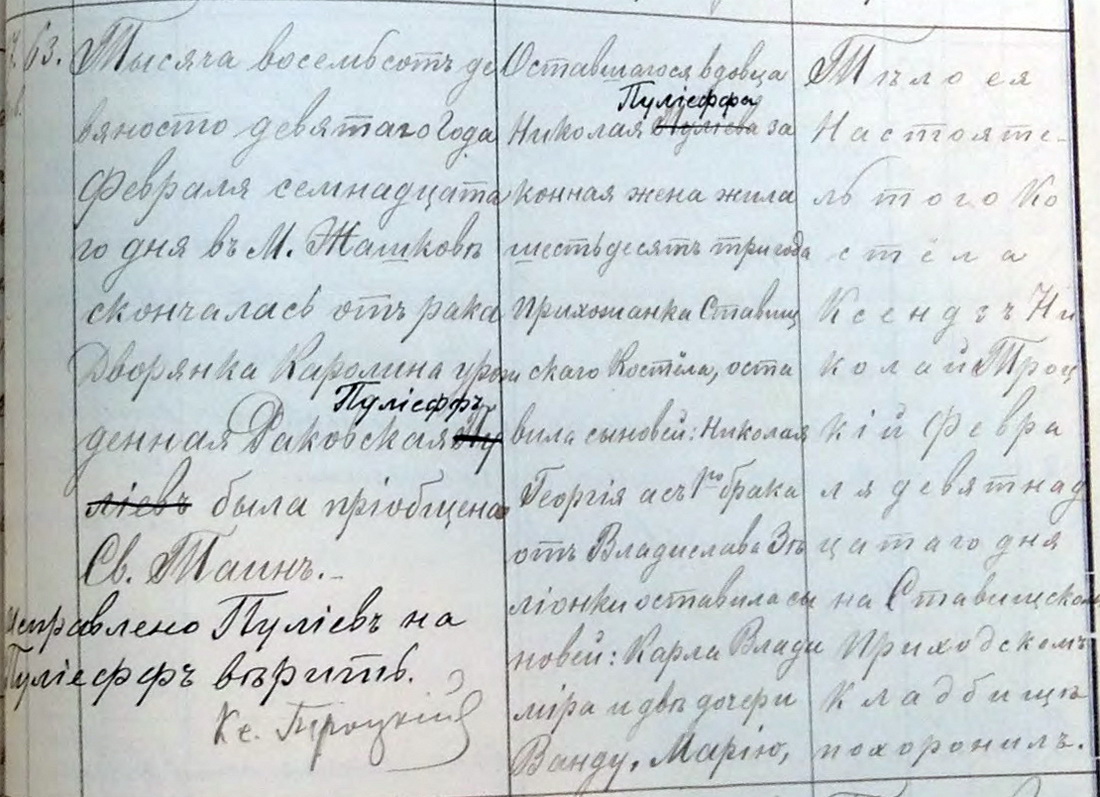 63. Тысяча восемьсотъ де
вяносто девятаго года
Февраля семнадцата
го дня въ М. Жашковѣ
скончалась отъ рака
Дворянка Каролина урож
Пуліеффъ
денная Раковская Пу
ліевъ была пріобщена
Св. Таинъ.
Исправлено Пуліевъ на
Пуліеффъ вѣрить.
Кс. Троцкій
Оставшагося вдовца
Пуліеффа
Николая Пуліева за
конная жена жила
шестьдесятъ три года
Прихожанка Ставищ
скаго Костёла, оста
вила сыновей: Николая
Георгія а съ 1го брака
отъ Владислава Зѣ
ліонки оставила сы
новей: Карла Влади
міра и двѣ дочери
Ванду, Марію,
Тѣло ея
Настояте-
ль того Ко
стёла
Ксендзъ Ни
колай Троц
кій Февра
ля девятнад
цатаго дня
на Ставищском
Приходскомъ
кладбищѣ
похоронилъ.